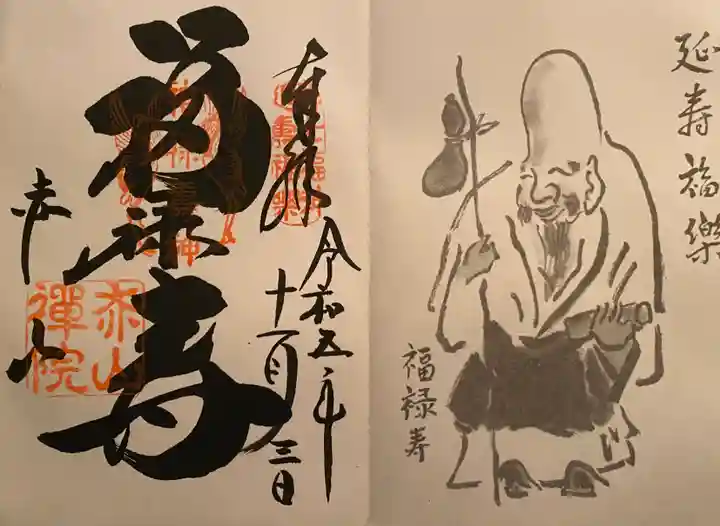 延寿福樂
福禄寿
奉拝
令和五年
十一月三日
福禄寿
赤山
赤山
禪院